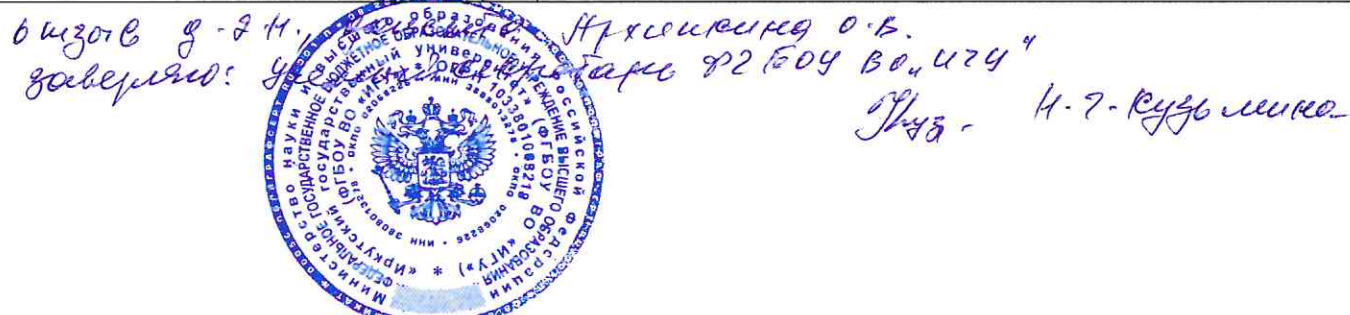 отзыв д.г.н., Архипкина О.В.
заверяю: Ученый секретарь ФГБОУ ВО „ИГУ“
Куз. Н.Г. Кузьмина
Министерство науки и высшего образования Российской Федерации
ФЕДЕРАЛЬНОЕ ГОСУДАРСТВЕННОЕ БЮДЖЕТНОЕ ОБРАЗОВАТЕЛЬНОЕ УЧРЕЖДЕНИЕ ВЫСШЕГО ОБРАЗОВАНИЯ
«Иркутский государственный университет» (ФГБОУ ВО «ИГУ») *
(ФГБОУ ВО «ИГУ») * ОГРН 1033801008218
ИНН 3808013278 * ОКПО 02068226